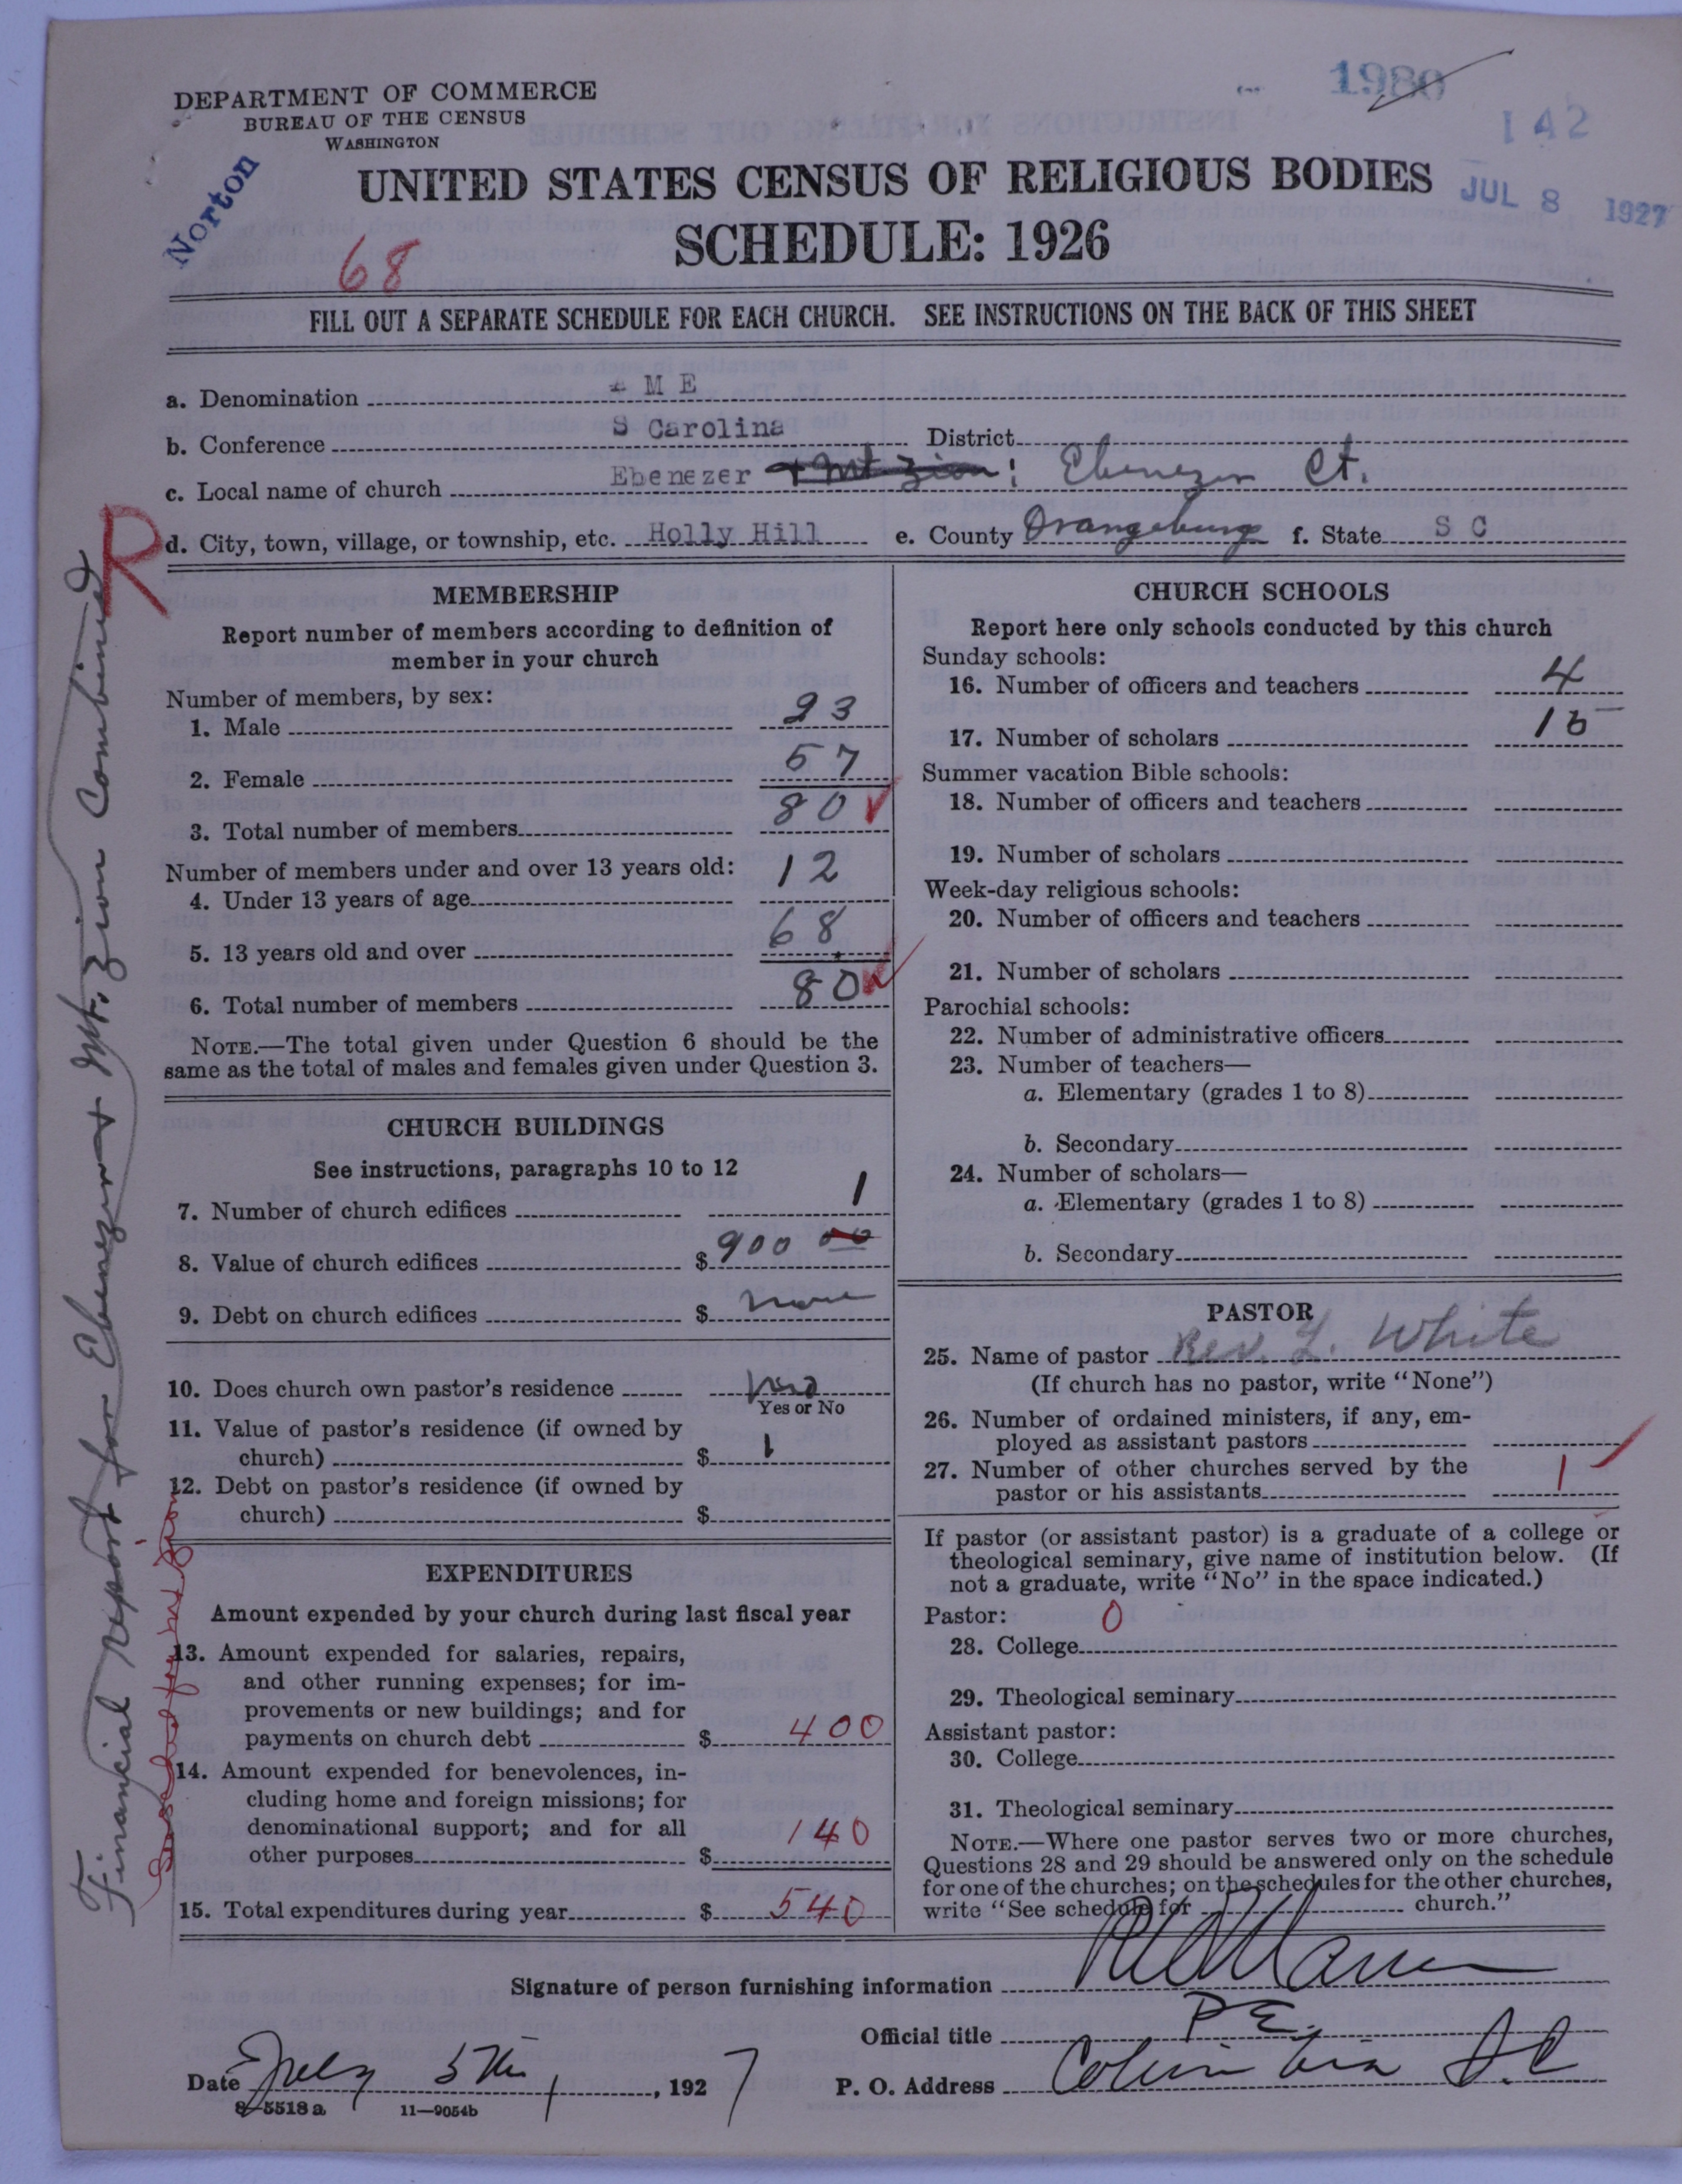 DEPARTMENT OF COMMERCE
BUREAU OF THE CENSUS
WASHINGTON
Norton
1980
142
JUL 8 1927
UNITED STATES CENSUS OF RELIGIOUS BODIES
SCHEDULE: 1926
68
FILL OUT A SEPARATE SCHEDULE FOR EACH CHURCH. SEE INSTRUCTIONS ON THE BACK OF THIS SHEET
a. Denomination M E
b. Conference S Carolina District
c. Local name of church Ebenezer + Mt Zion; Ebenezer Ct.
d. City, town, village, or township, etc. Holly Hill e. County Orangeburg f. State S C
R
Financial report for Ebenezer + Mt. Zion Combined
See sched for Mt Zion
MEMBERSHIP
Report number of members according to definition of
member in your church
Number of members, by sex:
1. Male 23
2. Female 57
3. Total number of members 80
Number of members under and over 13 years old:
4. Under 13 years of age 12
5. 13 years old and over 68
6. Total number of members 80
NOTE.—The total given under Question 6 should be the
same as the total of males and females given under Question 3.
CHURCH BUILDINGS
See instructions, paragraphs 10 to 12
7. Number of church edifices 1
8. Value of church edifices $ 900 00
9. Debt on church edifices $ none
10. Does church own pastor's residence
Yes or No
11. Value of pastor's residence (if owned by
church) $ 1
12. Debt on pastor's residence (if owned by
church) $
EXPENDITURES
Amount expended by your church during last fiscal year
13. Amount expended for salaries, repairs,
and other running expenses; for im-
provements or new buildings; and for
payments on church debt $ 400
14. Amount expended for benevolences, in-
cluding home and foreign missions; for
denominational support; and for all
other purposes $ 140
15. Total expenditures during year $ 540
CHURCH SCHOOLS
Report here only schools conducted by this church
Sunday schools:
16. Number of officers and teachers 4
17. Number of scholars 15
Summer vacation Bible schools:
18. Number of officers and teachers
19. Number of scholars
Week-day religious schools:
20. Number of officers and teachers
21. Number of scholars
Parochial schools:
22. Number of administrative officers
23. Number of teachers—
a. Elementary (grades 1 to 8)
b. Secondary
24. Number of scholars—
a. Elementary (grades 1 to 8)
b. Secondary
PASTOR
25. Name of pastor Rev. L. White
(If church has no pastor, write "None")
26. Number of ordained ministers, if any, em-
ployed as assistant pastors
27. Number of other churches served by the
pastor or his assistants 1
If pastor (or assistant pastor) is a graduate of a college or
theological seminary, give name of institution below. (If
not a graduate, write "No" in the space indicated.)
Pastor: 0
28. College
29. Theological seminary
Assistant pastor:
30. College
31. Theological seminary
NOTE.—Where one pastor serves two or more churches,
Questions 28 and 29 should be answered only on the schedule
for one of the churches; on the schedules for the other churches,
write "See schedule for church."
Signature of person furnishing information
Official title P E.
Date July 5th, 1927 P. O. Address Columbia S.C
8-5518 a 11-9054b